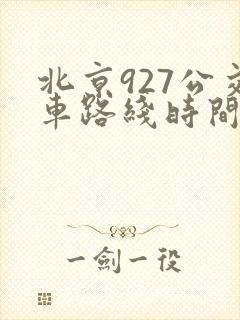 北京927公交
車路綫時間
一劍一役